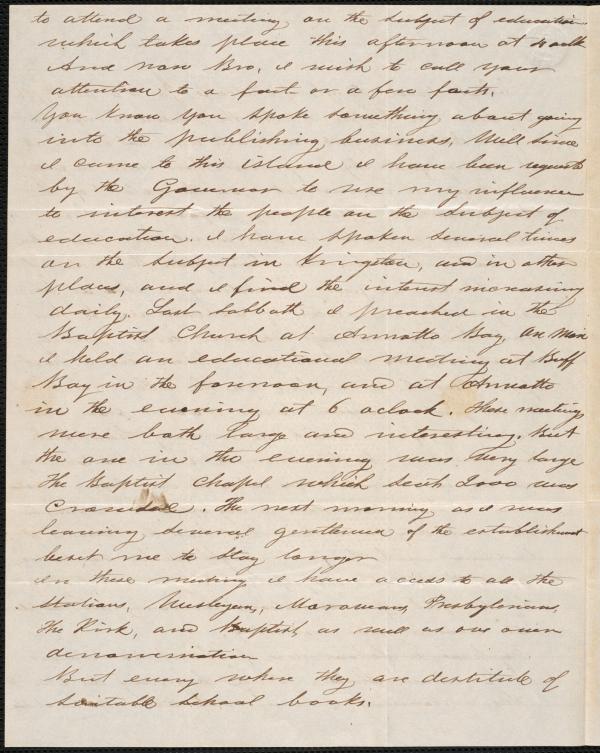 to attend a meeting on the subject of education
which takes place this afternoon at
And now Bro. I wish to call your
attention to a fact or a few facts.
You know you spoke something about going
into the publishing business. Well since
I came to this island I have been
by the Governor to use my influence
to interest the people on the subject of
education. I have spoken several times
on the subject in Kingston, and in other
places, and I find the interest increasing
daily. Last Sabbath I preached in the
Baptist Church at Annatto Bay, on Mon
I held an educational meeting at Buff
Bay in the forenoon, and at Annatto
in the evening at 6 oclock. These meetings
were both large and interesting. But
the one in the evening was very large
The Baptist Chapel which 2000 was
Crowded. The next morning as I was
leaving several gentlemen of the establishment
beset me to stay longer
In these meeting I have access to all the
Stations, Wesleyan, Moravians, Presbyterians,
The Kirk, and Baptist, as well as our own
denomination
But every where they are destitute of
suitable school books.